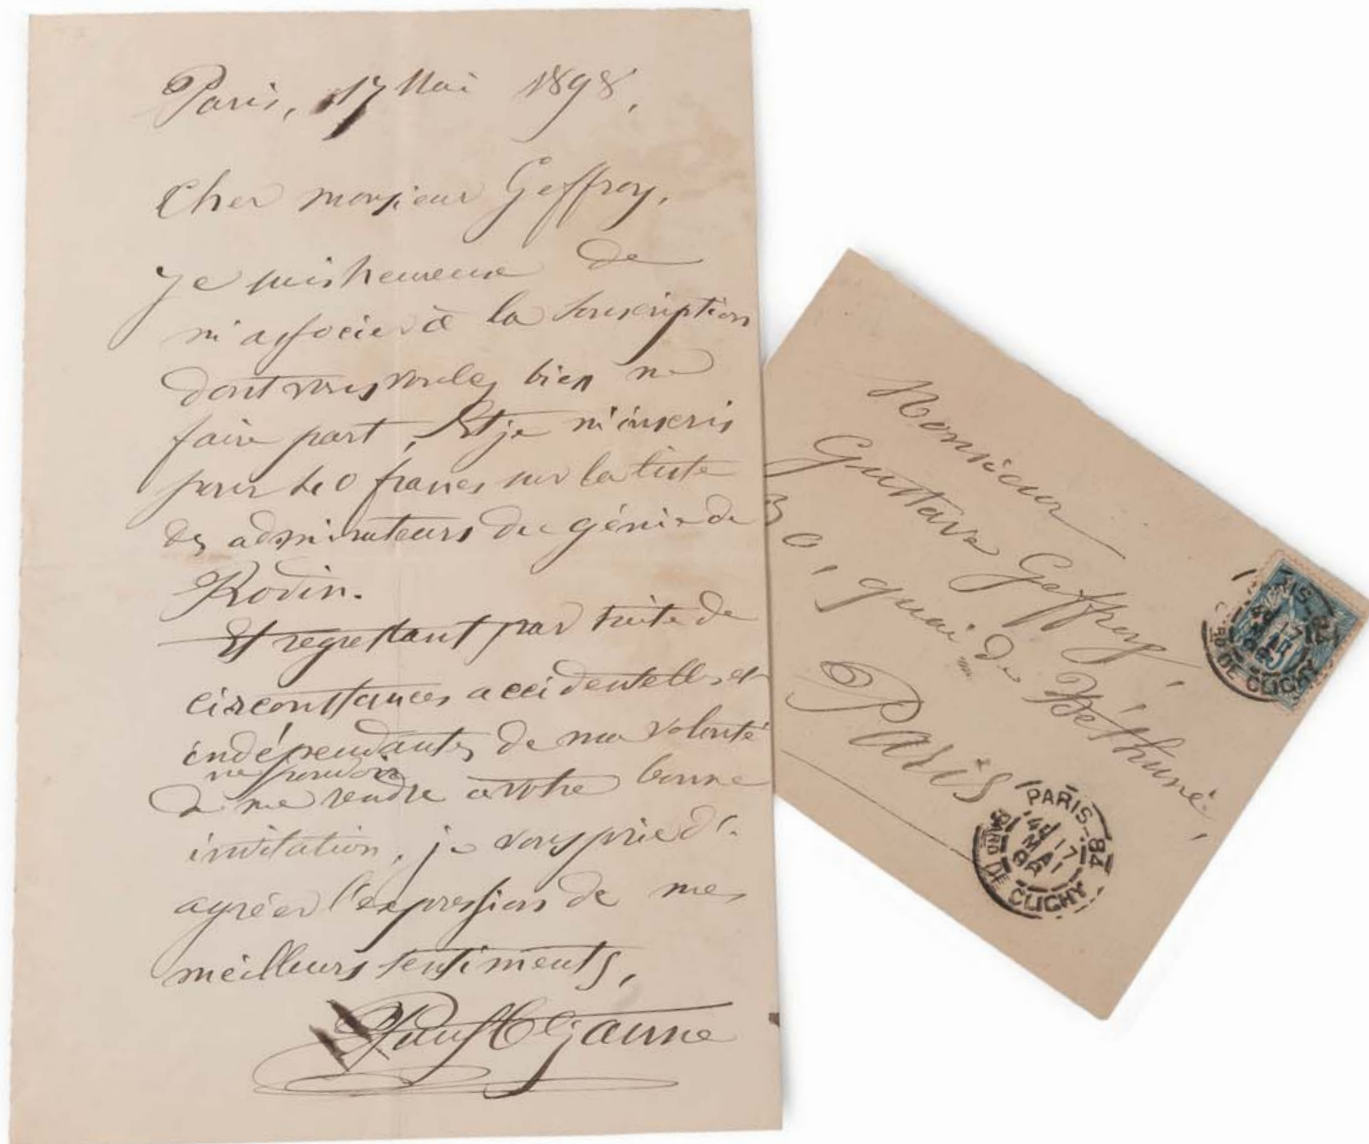 Paris, 17 Mai 1898,
Cher monsieur Geffroy,
Je suis heureux de
m'associer à la souscription
dont vous voulez bien me
faire part, Et je m'inscris
pour 40 francs sur la liste
des admirateurs du génie de
Rodin.
Et regrettant par suite de
circonstances accidentelles et
indépendantes de ma volonté
ne pouvoir
de me rendre à votre bonne
invitation, je vous prie d'
agréer l'expression de mes
meilleurs sentiments,
Paul Cezanne
Monsieur
Gustave Geffroy,
30, quai de Béthune,
Paris
PARIS-84
17
MAI
98
BARD DE CLICHY
DE CLICHY